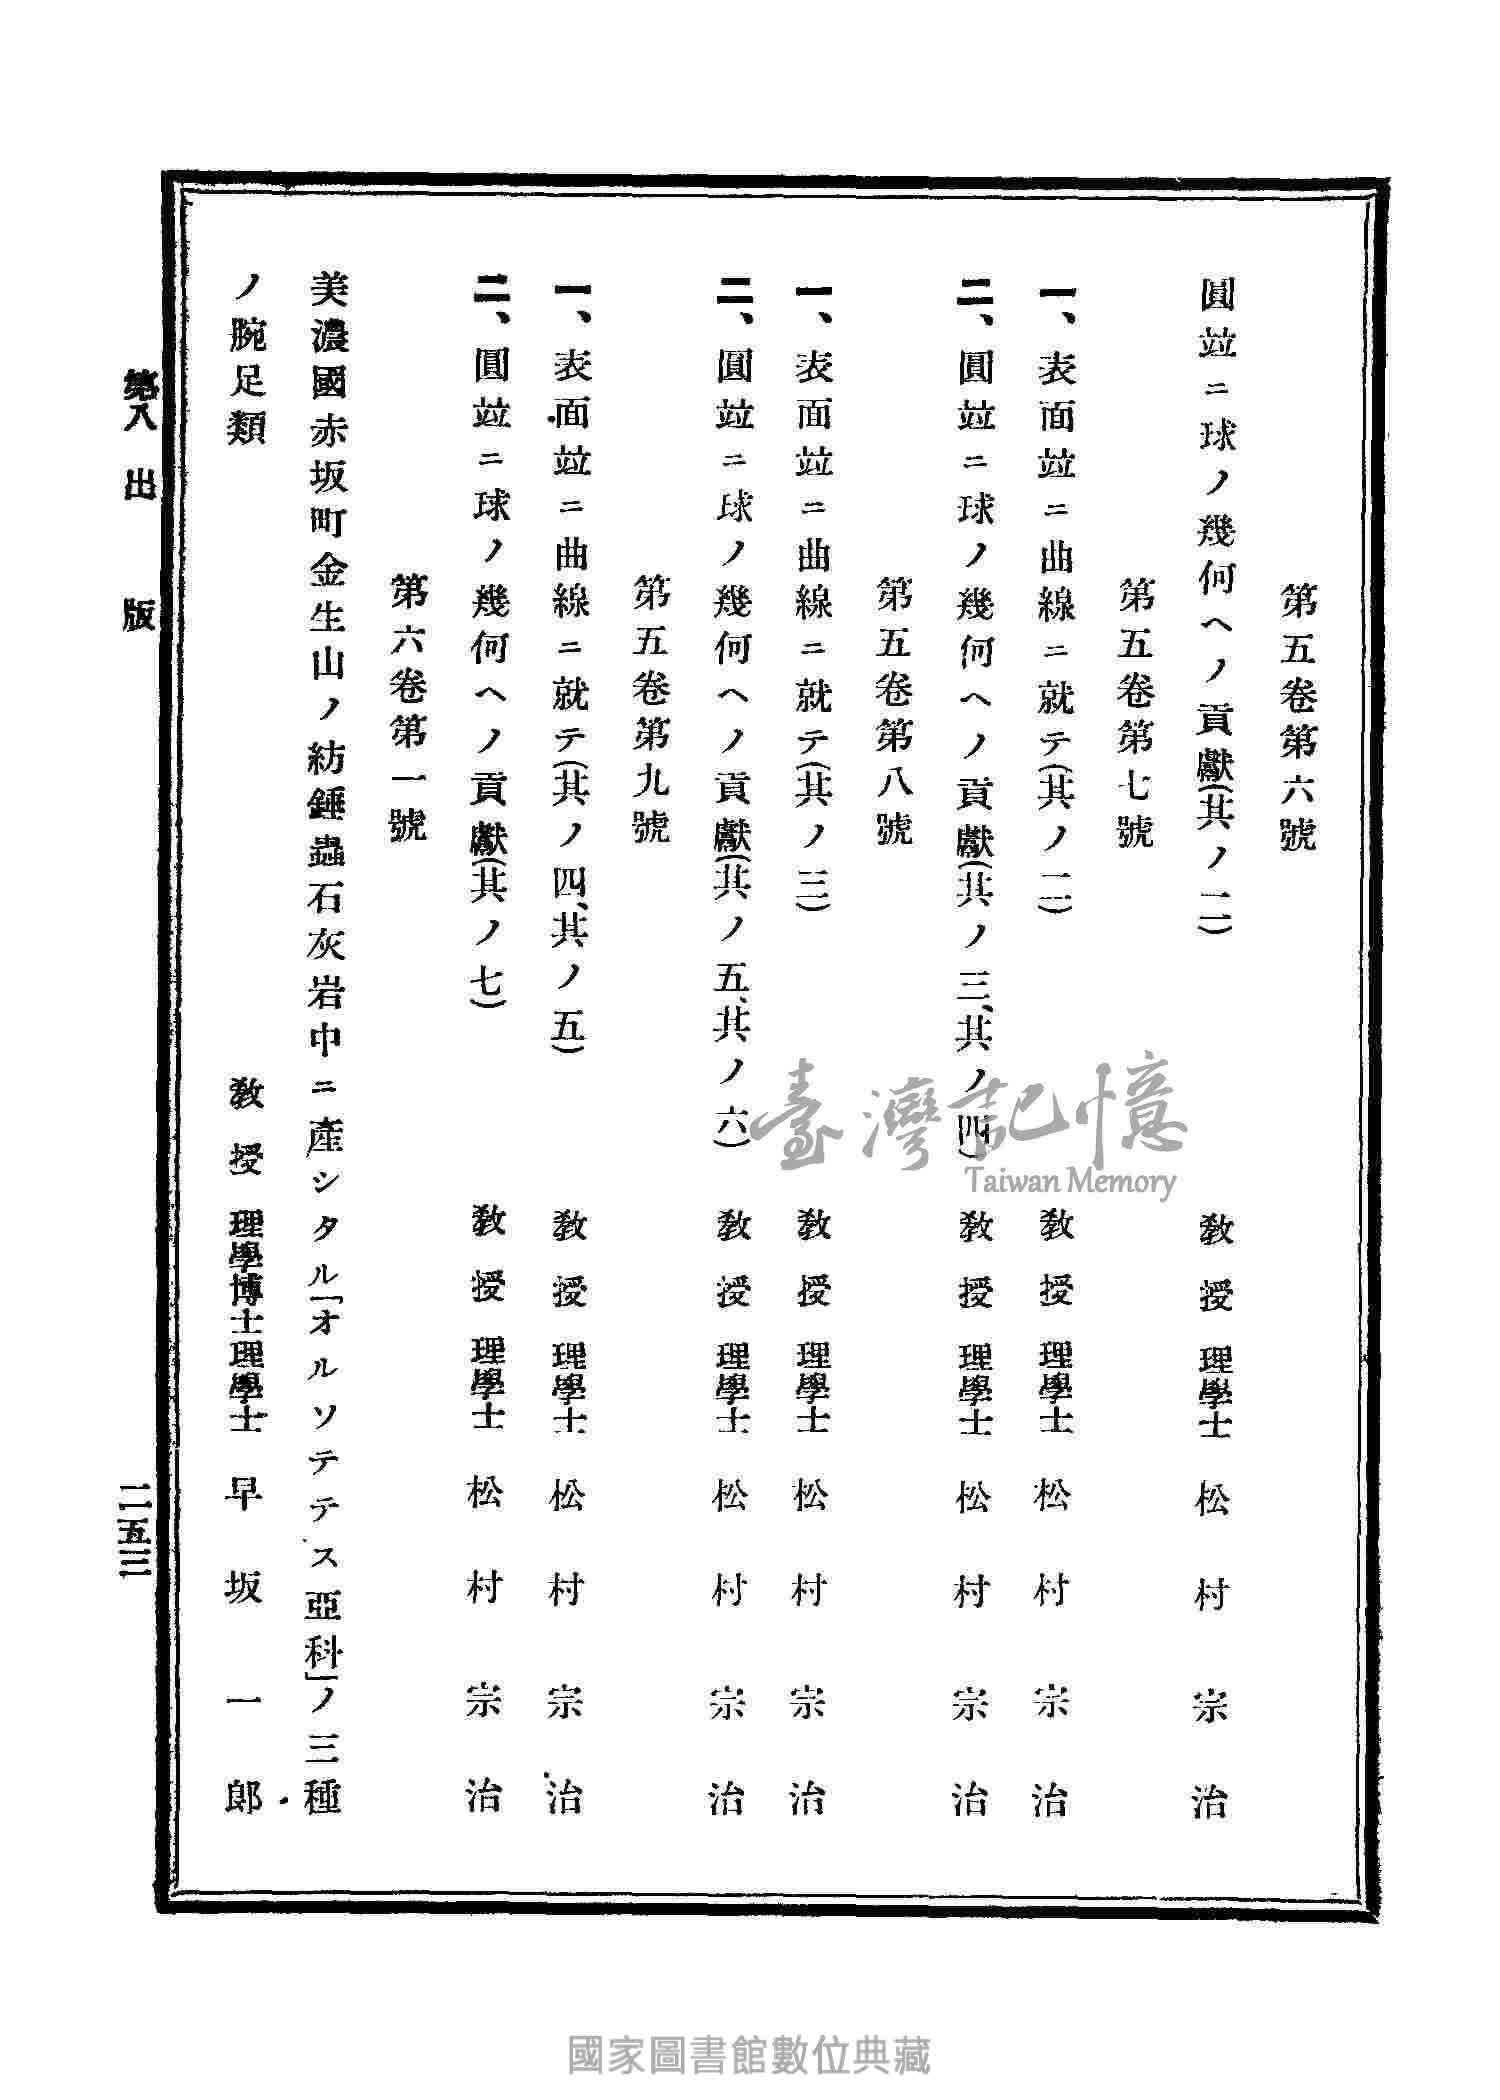 第五卷第六號
圓竝ニ球ノ幾何ヘノ貢獻(其ノ二) 敎授 理學士 松村宗治
第五卷第七號
一、表面竝ニ曲線ニ就テ(其ノ二) 敎授 理學士 松村宗治
二、圓竝ニ球ノ幾何ヘノ貢獻(其ノ三、其ノ四) 敎授 理學士 松村宗治
第五卷第八號
一、表面竝ニ曲線ニ就テ(其ノ三) 敎授 理學士 松村宗治
二、圓竝ニ球ノ幾何ヘノ貢獻(其ノ五、其ノ六) 敎授 理學士 松村宗治
第五卷第九號
一、表面竝ニ曲線ニ就テ(其ノ四、其ノ五) 敎授 理學士 松村宗治
二、圓竝ニ球ノ幾何ヘノ貢獻(其ノ七) 敎授 理學士 松村宗治
第六卷第一號
美濃國赤坂町金生山ノ紡錘蟲石灰岩中ニ產シタル「オルソテテス亞科」ノ三種
ノ腕足類 敎授 理學博士理學士 早坂一郎
第八 出版
二五三
臺灣記憶
Taiwan Memory
國家圖書館數位典藏